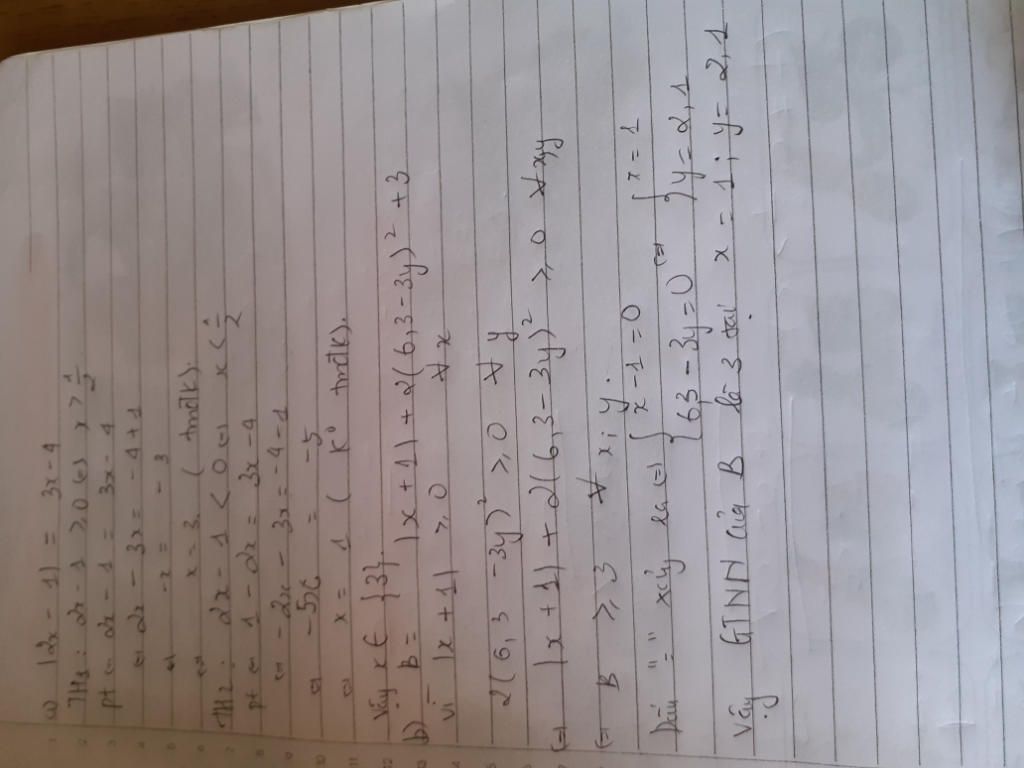 a) |2x - 1| = 3x - 4
TH1: 2x - 1 ≥ 0 ⇔ x ≥ 1/2
pt ⇔ 2x - 1 = 3x - 4
⇔ 2x - 3x = -4 + 1
⇔ -x = -3
⇔ x = 3 (tmđk).
TH2: 2x - 1 < 0 ⇔ x < 1/2
pt ⇔ 1 - 2x = 3x - 4
⇔ -2x - 3x = -4 - 1
⇔ -5x = -5
⇔ x = 1 (k° tmđk).
Vậy x ∈ {3}
b) B = |x + 1| + 2(6,3 - 3y)² + 3
Vì |x + 1| ≥ 0 ∀ x
2(6,3 - 3y)² ≥ 0 ∀ y
⇔ |x + 1| + 2(6,3 - 3y)² ≥ 0 ∀ x,y
⇔ B ≥ 3 ∀ x; y.
Dấu "=" xảy ra ⇔ { x - 1 = 0 ⇔ { x = 1
{ 6,3 - 3y = 0 } y = 2,1
Vậy GTNN của B là 3 tại x = 1; y = 2,1